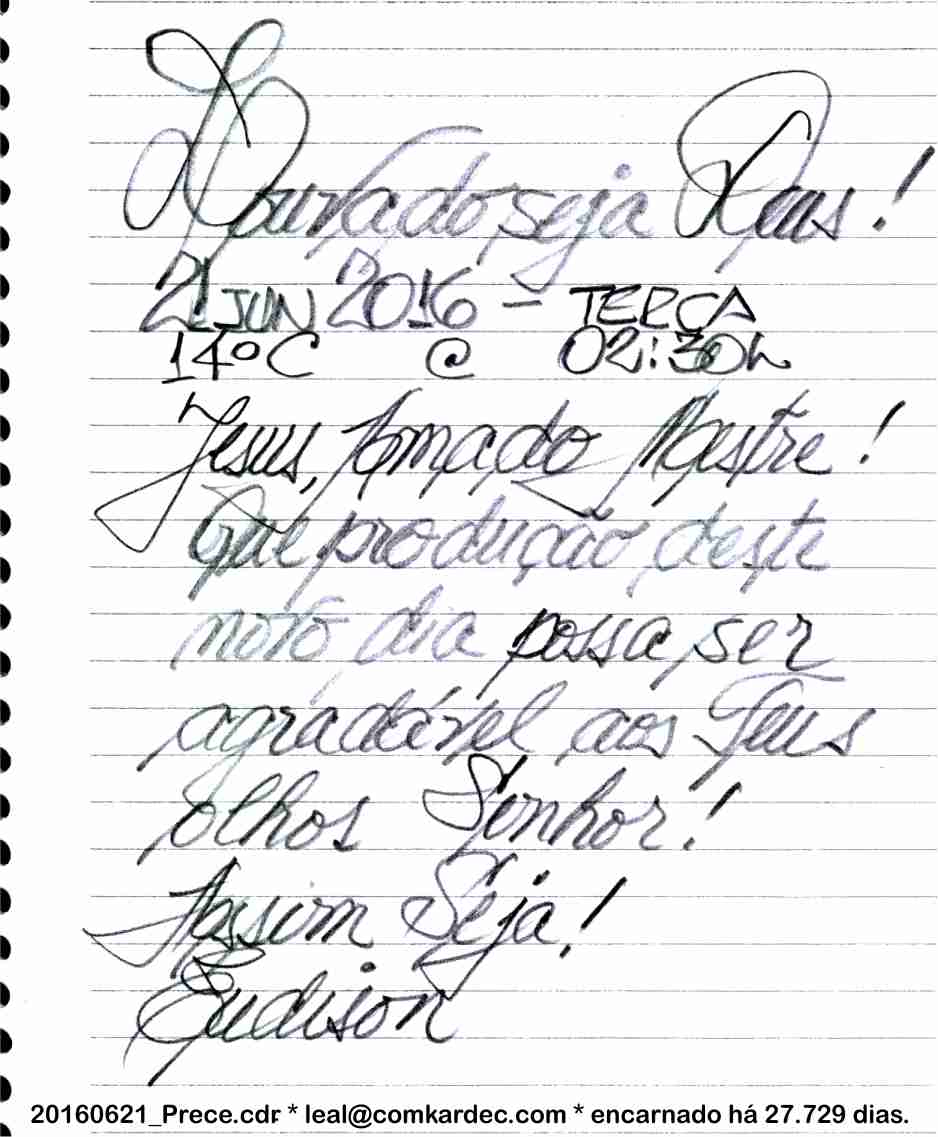 Louvado seja Deus!
21 JUN 2016 - TERÇA
14º C @ 02:30h
Jesus, Amado Mestre!
Que produção deste
novo dia possa ser
agradável aos Teus
olhos Senhor!
Assim Seja!
Eudison
20160621_Prece.cdr * leal@comkardec.com * encarnado há 27.729 dias.